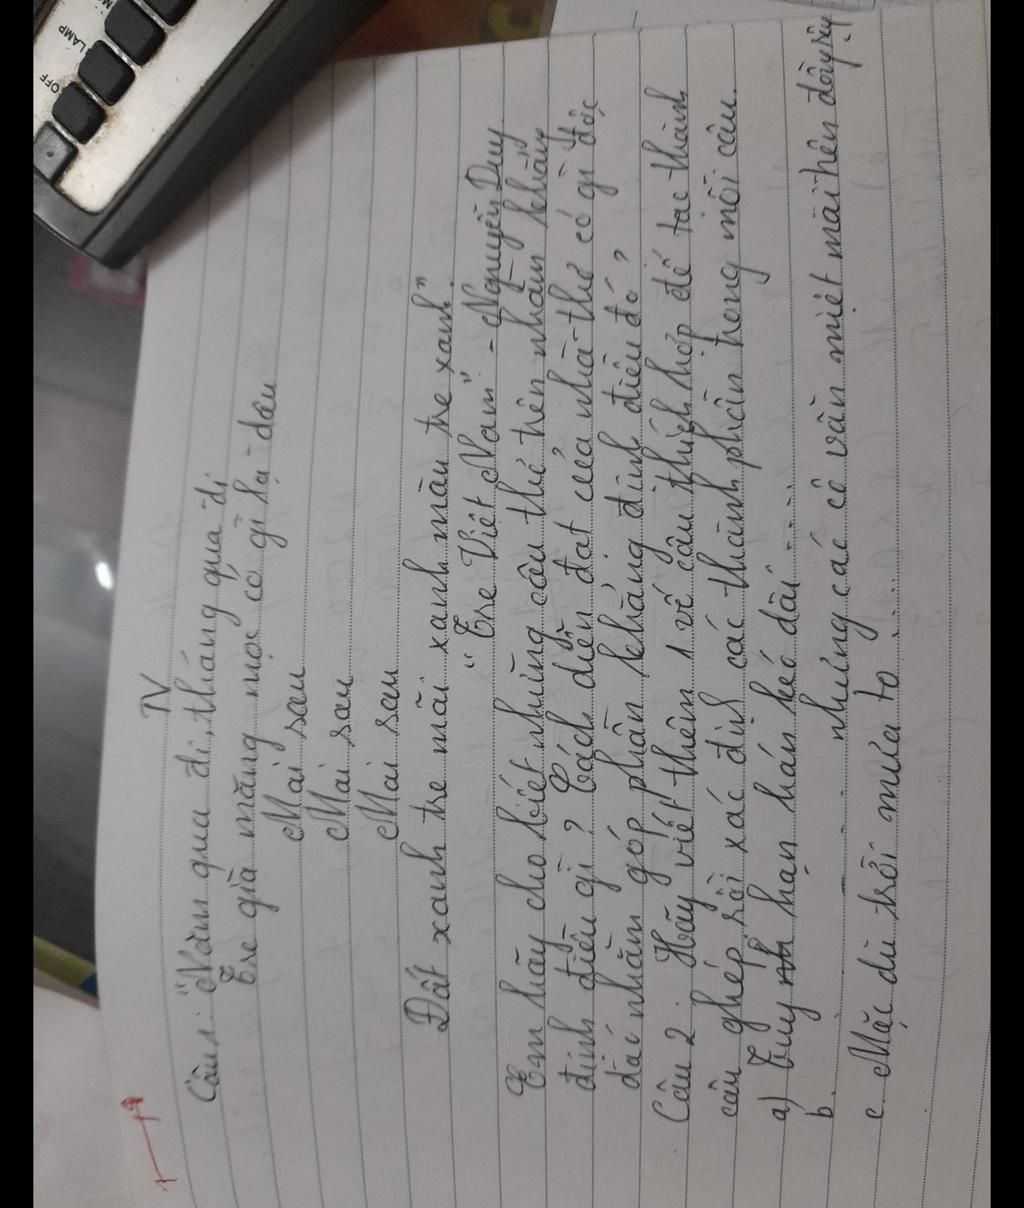 TV
Câu 1: "Năm qua đi, tháng qua đi
Tre già măng mọc có gì lạ đâu
Mai sau
Mai sau
Mai sau
Đất xanh tre mãi xanh màu tre xanh"
"Tre Việt Nam" - Nguyễn Duy
Em hãy cho biết những câu thơ trên nhằm khẳng
định điều gì? Cách diễn đạt của nhà thơ có gì độc
đáo nhằm góp phần khẳng định điều đó?
Câu 2: Hãy viết thêm 1 vế câu thích hợp để tạo thành
câu ghép rồi xác định các thành phần trong mỗi câu.
a) Tuy hạn hán kéo dài ......
b. nhưng các cô vẫn miệt mài trên đồng ruộng
c Mặc dù trời mưa to .....
OFF
LAMP